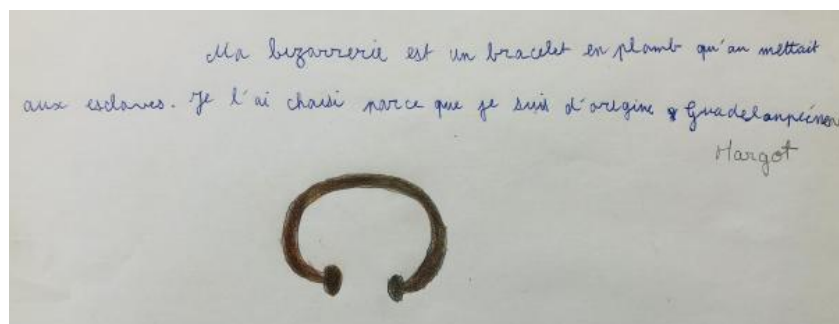 Ma bizarrerie est un bracelet en plomb qu'on mettait
aux esclaves. Je l'ai choisi parce que je suis d'origine Guadeloupéenne
Margot